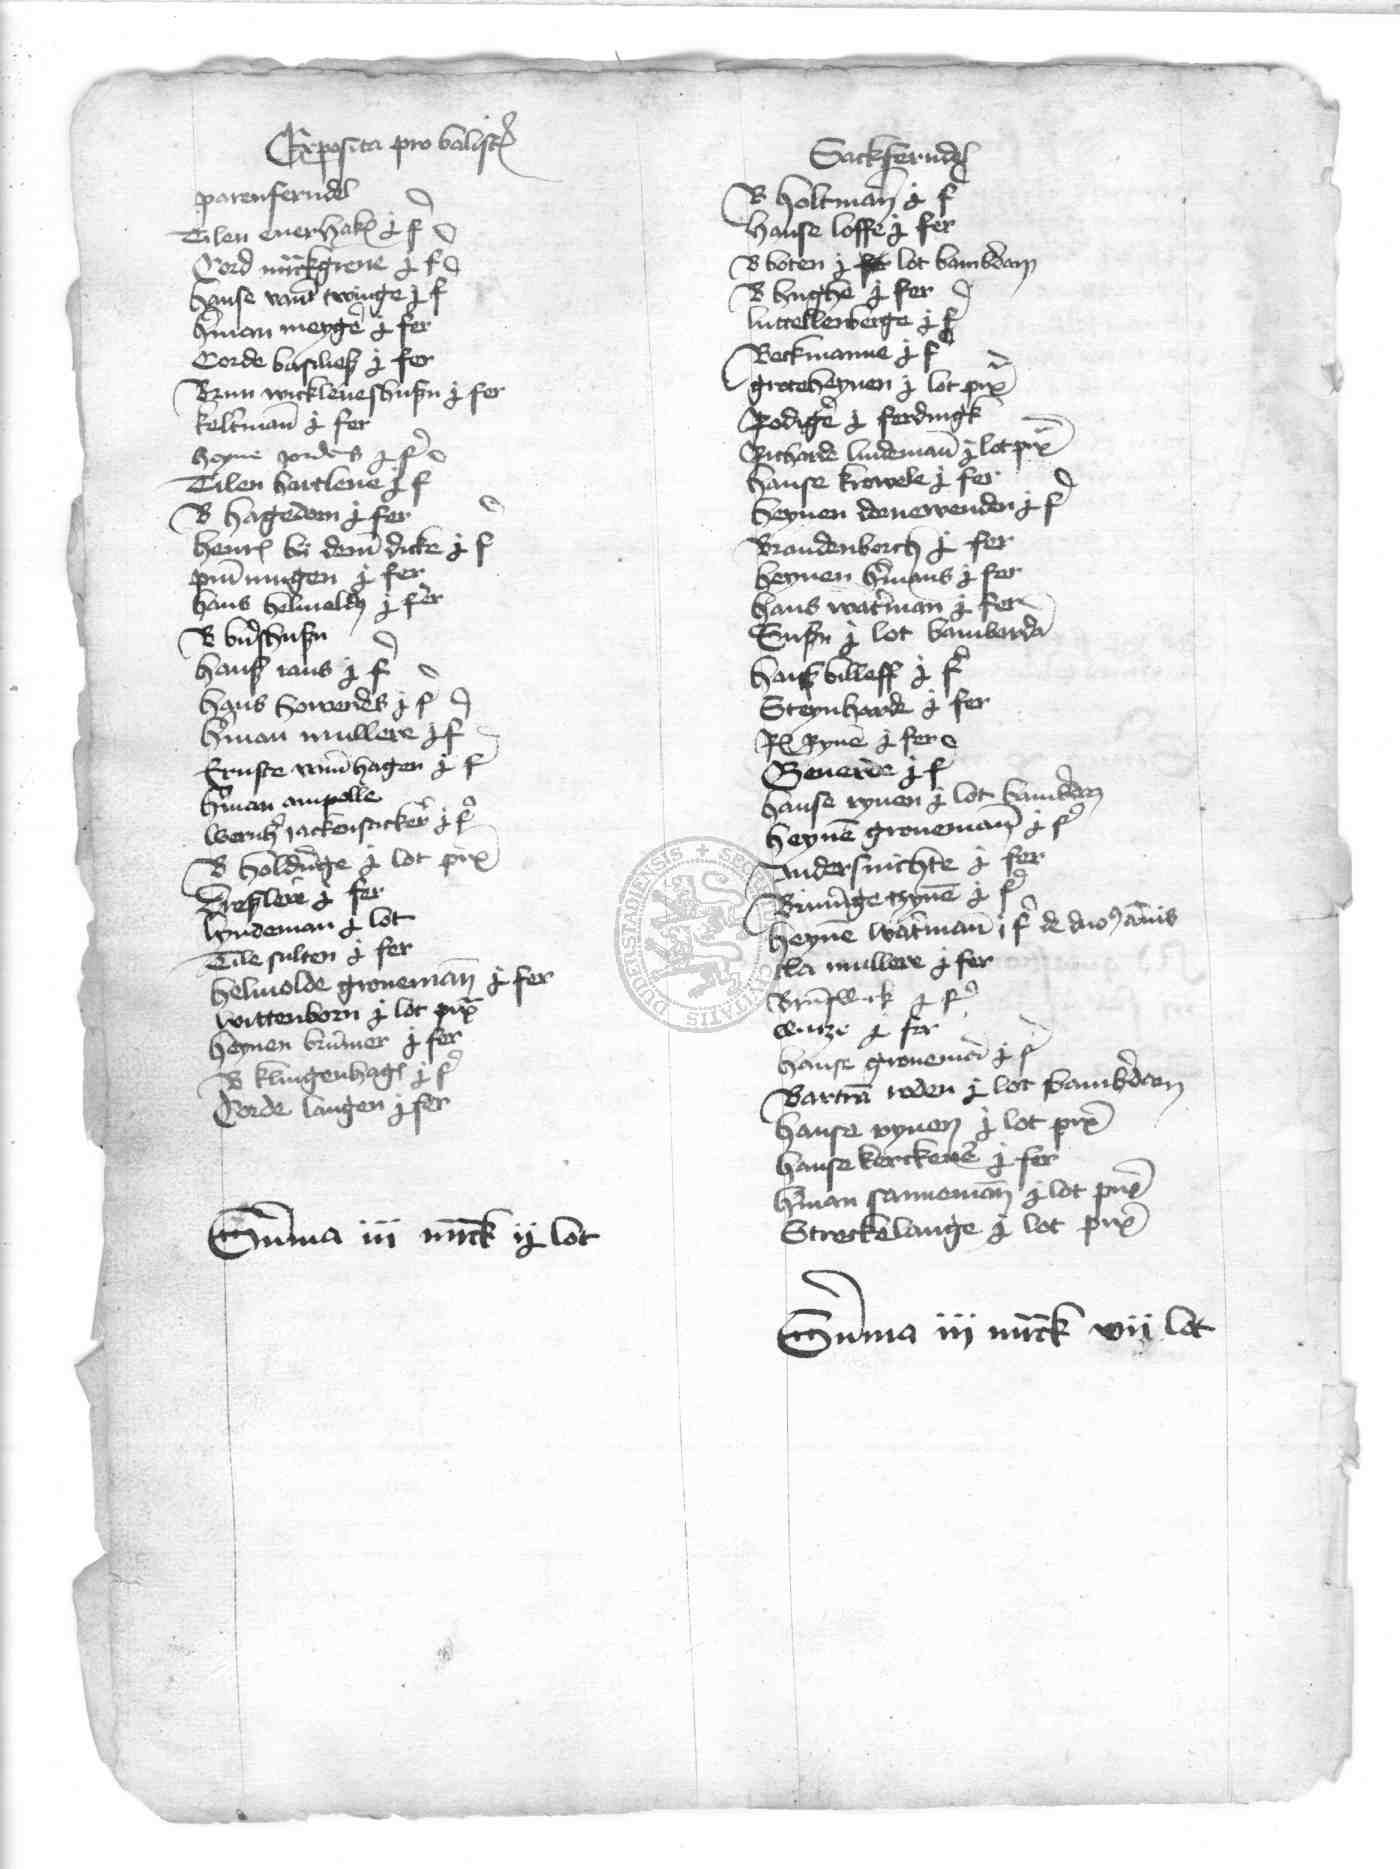 Exposita pro balist
parenferndel
Tilen euerhak j f
Cord mu̅ckgrene j f
hanse vam̅ twinge j f
h̅man meyger j fer
Corde basilies j fer
Brun wickleueshusen j fer
keltman̅ j fer
heyne jordens j f
Tilen hartleue j f
B hagedorn j fer
henr bij dem̅ dicke j f
pin̅nigen j fer
hans helmoldes j fer
B bu̅shusen
hans raus j f
hans howendes j f
h̅man mullere j f
Ernste vam̅hagen j f
h̅man ampolle
wernh jackensticker j f
B holdu̅ge j lot prx
Dreslere j fer
lyndeman j lot
Tile sulten j fer
helmolde groneman̅ j fer
wittenborn j lot prx
heynen bru̅mer j fer
B klingenhag j f
Corde langen j fer
Su̅ma iii mr̅ck ij lot
Sackferndel
B holtman̅ j f
hanse loffe j fer
B boten j lot bambar̅den
B hughe̅ j fer
luttellenberge j f
Beckmanne j f
groteheynen j lot prx
Rodiger j ferdingk
Richarde lindeman̅ j lot prx
hanse krowele j fer
heynen denewender j f
Brandenborch j fer
heynen h̅mans j fer
hans wat̅man j fer
Eusen j lot bambarda
hans billeff j f
Steynharde j fer
R Ryne̅ j fer
Geuerde j f
hanse rynen j lot bambar̅den
heyne̅ groneman̅ j f
Andersnichte j fer
Brun̅ge tzyne̅ j f
heyne̅ wat̅man̅ j f de duo9 an̅is
cla mullere j fer
Brun̅swick j f
wintze j fer
hanse groneman̅ j f
Bartra̅ roden j lot bambar̅den
hanse rynen j lot prx
hanse kerckener j fer
h̅man sanneman̅ j lot prx
Streckelange j lot prx
Su̅ma iij mr̅ck vij lot
SECRETUM CIVITATIS DUDERSTADIENSIS